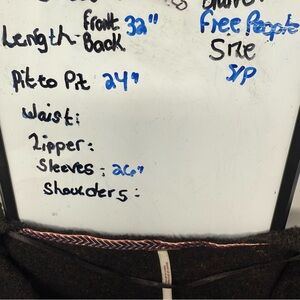 Front 32"
Length - Back
Pit to Pit 24"
Waist:
Zipper:
Sleeves: 26"
Shoulders:
Free People
Size
S/P